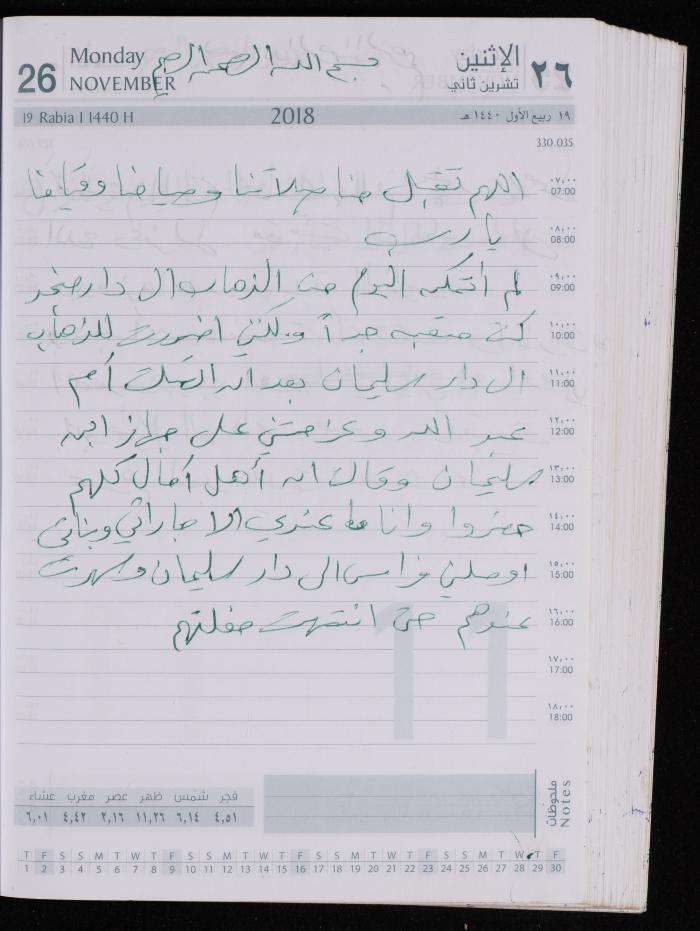 26
Monday
NOVEMBER
بسم الله الرحمن الرحيم
الإثنين
تشرين ثاني
٢٦
19 Rabia I 1440 H
2018
١٩ ربيع الأول ١٤٤٠ هـ
330.035
٠٧,٠٠
07:00
اللهم تقبل منا صلاتنا وصيامنا وقيامنا
٠٨,٠٠
08:00
يا رب
٠٩,٠٠
09:00
لم أتمكن اليوم من الذهاب الى دار صخر
١٠,٠٠
10:00
كنت متعبه جداً ولكنني اضررت للذهاب
١١,٠٠
11:00
الى دار سليمان بعد ان اتصلت أم
١٢,٠٠
12:00
عبد الله وعزمتني على جواز ابن
١٣,٠٠
13:00
سليمان وقالت ان أهل كلهم
١٤,٠٠
14:00
حضروا وانا ما عندي الا جاراتي وبناتي
١٥,٠٠
15:00
اوصلني فراس الى دار سليمان وسهرت
١٦,٠٠
16:00
عندهم حتى انتهت حفلتهم
١٧,٠٠
17:00
١٨,٠٠
18:00
11
فجر شمس ظهر عصر مغرب عشاء
٤,٥١ ٦,١٤ ١١,٢٦ ٢,١٦ ٤,٤٢ ٦,٠١
ملحوظات
Notes
T F S S M T W T F S S M T W T F S S M T W T F S S M T W T F
1 2 3 4 5 6 7 8 9 10 11 12 13 14 15 16 17 18 19 20 21 22 23 24 25 26 27 28 29 30